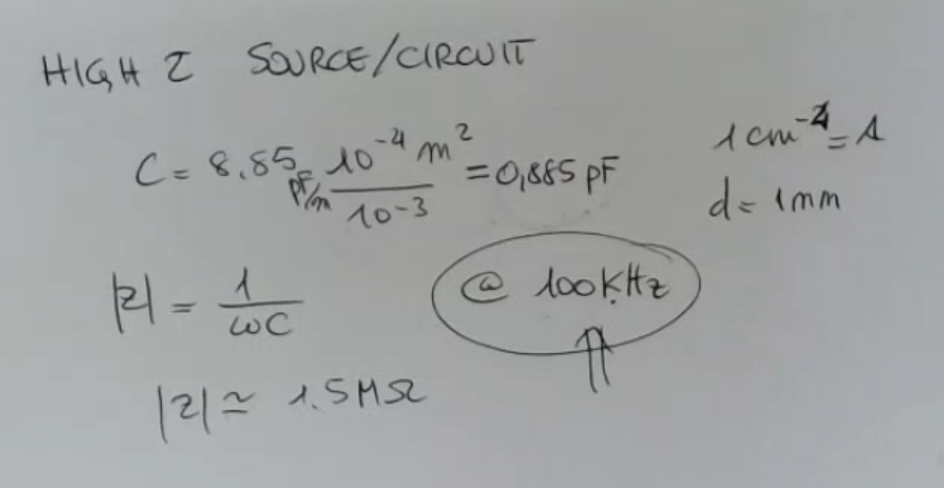 HIGH Z SOURCE/CIRCUIT
C = 8.85 pF/m 10⁻⁴ m² / 10⁻³ = 0,885 pF
1 cm⁻² = A
d = 1 mm
|Z| = 1 / ωC
@ 100KHz
|Z| ≃ 1.5MΩ